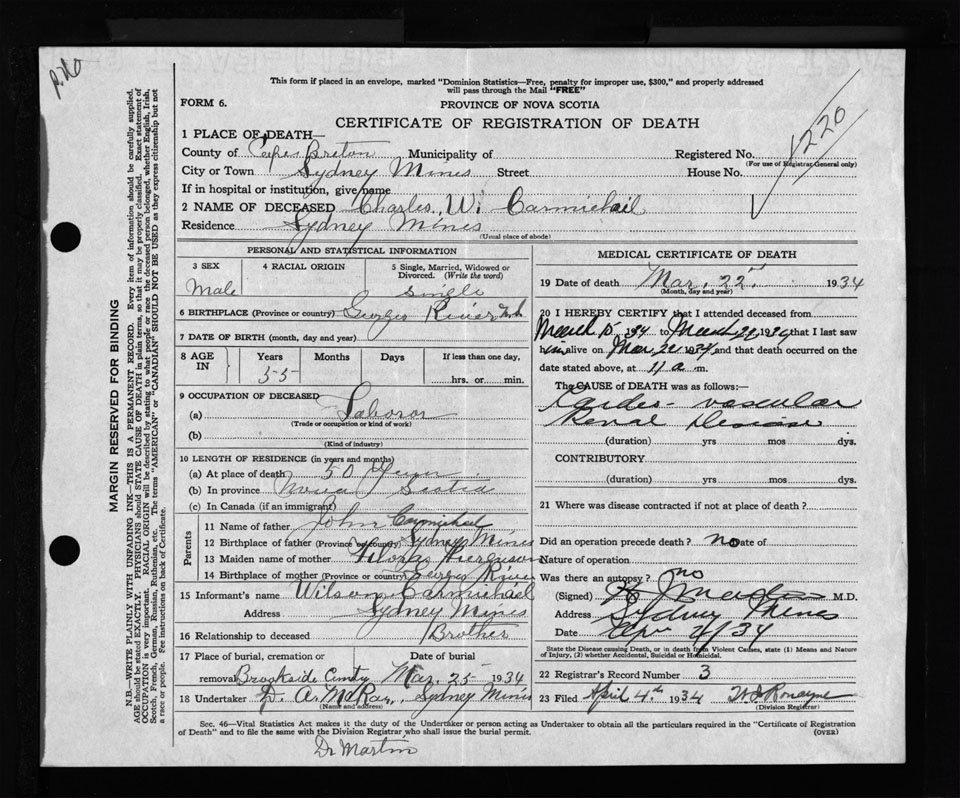 This form if placed in an envelope, marked "Dominion Statistics—Free, penalty for improper use, $300," and properly addressed
will pass through the Mail "FREE"
FORM 6.
PROVINCE OF NOVA SCOTIA
CERTIFICATE OF REGISTRATION OF DEATH
1220
1 PLACE OF DEATH—
County of Cape Breton Municipality of
Registered No.
(For use of Registrar General only)
City or Town Sydney Mines Street House No.
If in hospital or institution, give name
2 NAME OF DECEASED Charles W. Carmichail
Residence Sydney Mines
(Usual place of abode)
PERSONAL AND STATISTICAL INFORMATION
3 SEX
Male
4 RACIAL ORIGIN
5 Single, Married, Widowed or
Divorced. (Write the word)
Single
6 BIRTHPLACE (Province or country) Georges River
7 DATE OF BIRTH (month, day and year)
8 AGE IN
Years Months Days If less than one day,
55
hrs. or min.
9 OCCUPATION OF DECEASED
(a) Laboror
(Trade or occupation or kind of work)
(b)
(Kind of industry)
10 LENGTH OF RESIDENCE (in years and months)
(a) At place of death 50
(b) In province Nova Scotia
(c) In Canada (if an immigrant)
Parents
11 Name of father John Carmichael
12 Birthplace of father (Province or country) Sydney Mines
13 Maiden name of mother
14 Birthplace of mother (Province or country) Georges River
15 Informant's name Wilson Carmichael
Address Sydney Mines
16 Relationship to deceased Brother
17 Place of burial, cremation or removal Date of burial
Brookside Mar. 25 1934
18 Undertaker D. A. McRae, Sydney Mines
(Name and address)
MEDICAL CERTIFICATE OF DEATH
19 Date of death Mar. 22nd 1934
(Month, day and year)
20 I HEREBY CERTIFY that I attended deceased from
March 15 1934 to March 22 1934 that I last saw
him alive on Mar 22 1934 and that death occurred on
date stated above, at 11 a. m.
The CAUSE OF DEATH was as follows:—
Cardio-vascular
Renal Disease
(duration) yrs mos dys.
CONTRIBUTORY
(duration) yrs mos dys.
21 Where was disease contracted if not at place of death?
Did an operation precede death? No Date of
Nature of operation
Was there an autopsy? no
(Signed) M.D.
Address Sydney Mines
Date Apr 4/34
State the Disease causing Death, or in death from Violent Causes, state (1) Means and Nature
of Injury, (2) whether Accidental, Suicidal or Homicidal.
22 Registrar's Record Number 3
23 Filed April 4th 1934
(Division Registrar)
Sec. 46—Vital Statistics Act makes it the duty of the Undertaker or person acting as Undertaker to obtain all the particulars required in the "Certificate of Registration
of Death" and to file the same with the Division Registrar who shall issue the burial permit.
(OVER)
Dr Martin
MARGIN RESERVED FOR BINDING
N.B.—WRITE PLAINLY WITH UNFADING INK—THIS IS A PERMANENT RECORD. Every item of information should be carefully supplied.
AGE should be stated EXACTLY. PHYSICIANS should STATE CAUSE OF DEATH in plain terms, so that it may be properly classified. Exact statement of
OCCUPATION is very important. RACIAL ORIGIN will be described by stating to what people or race the deceased person belonged, whether English, Irish,
Scotch, French, German, Russian, Ruthenian, etc. The terms "AMERICAN" or "CANADIAN" SHOULD NOT BE USED as they express citizenship but not
a race or people. Fee instructions on back of Certificate.